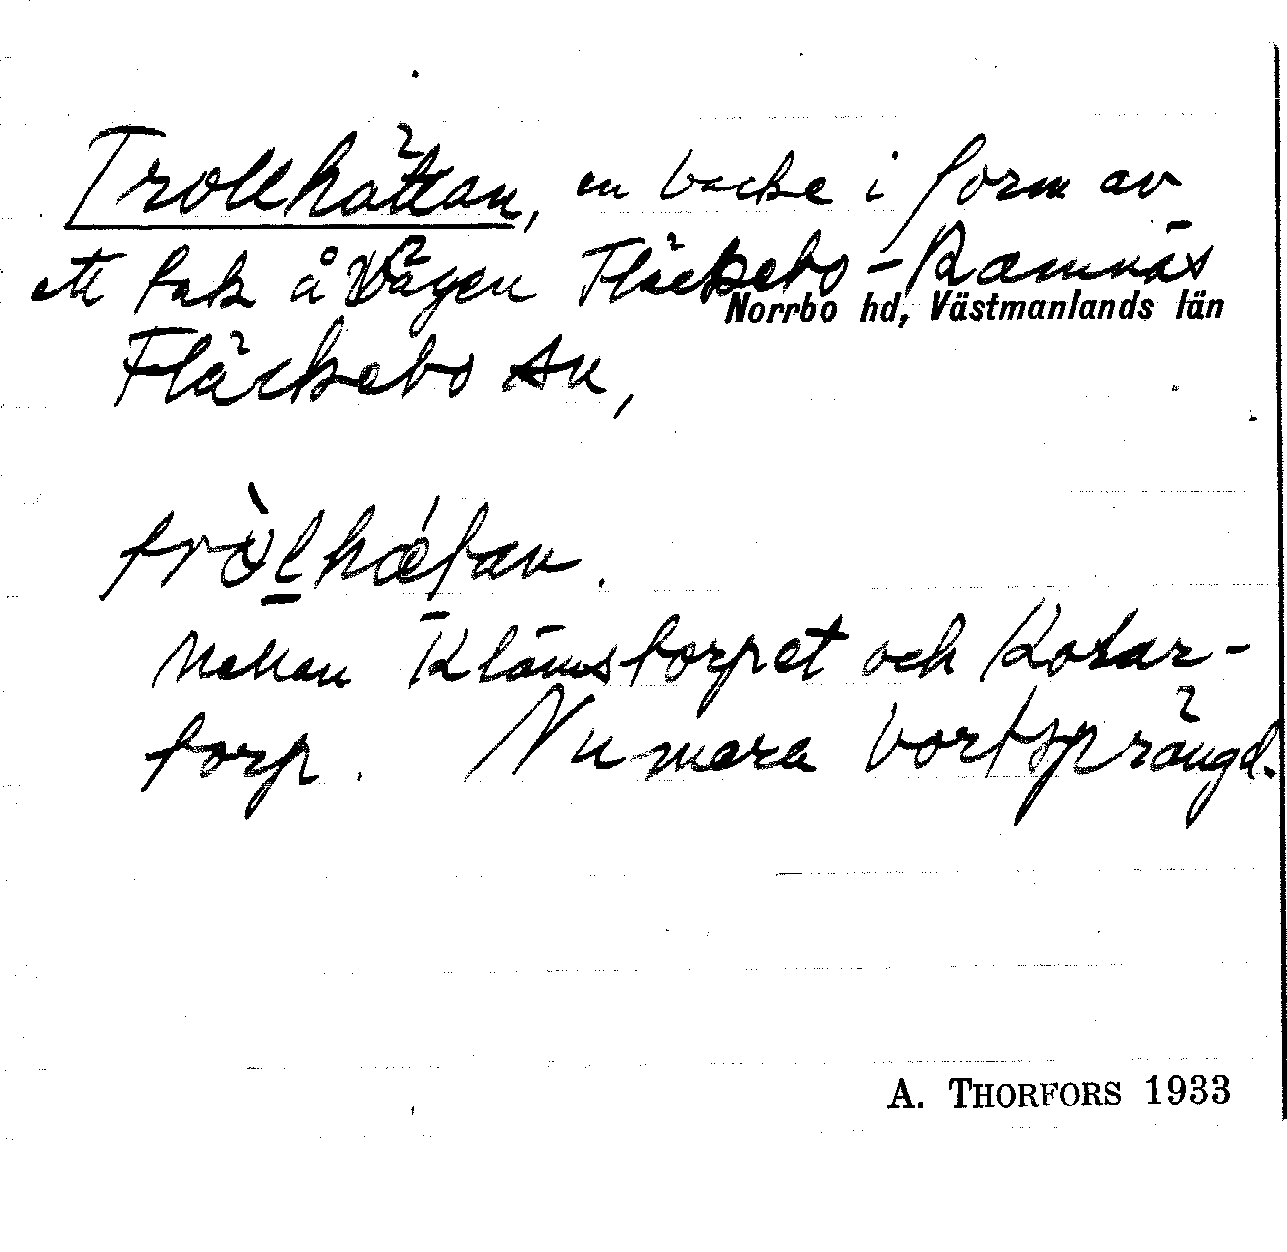 Trollhättan, en backe i form av
ett tak å Vägen Fläckebo - Ramnäs
Norrbo hd, Västmanlands län
Fläckebo sn,
tròlhǽtan.
Mellan Klämstorpet och Kotar-
torp. Numera bortsprängd.
A. THORFORS 1933